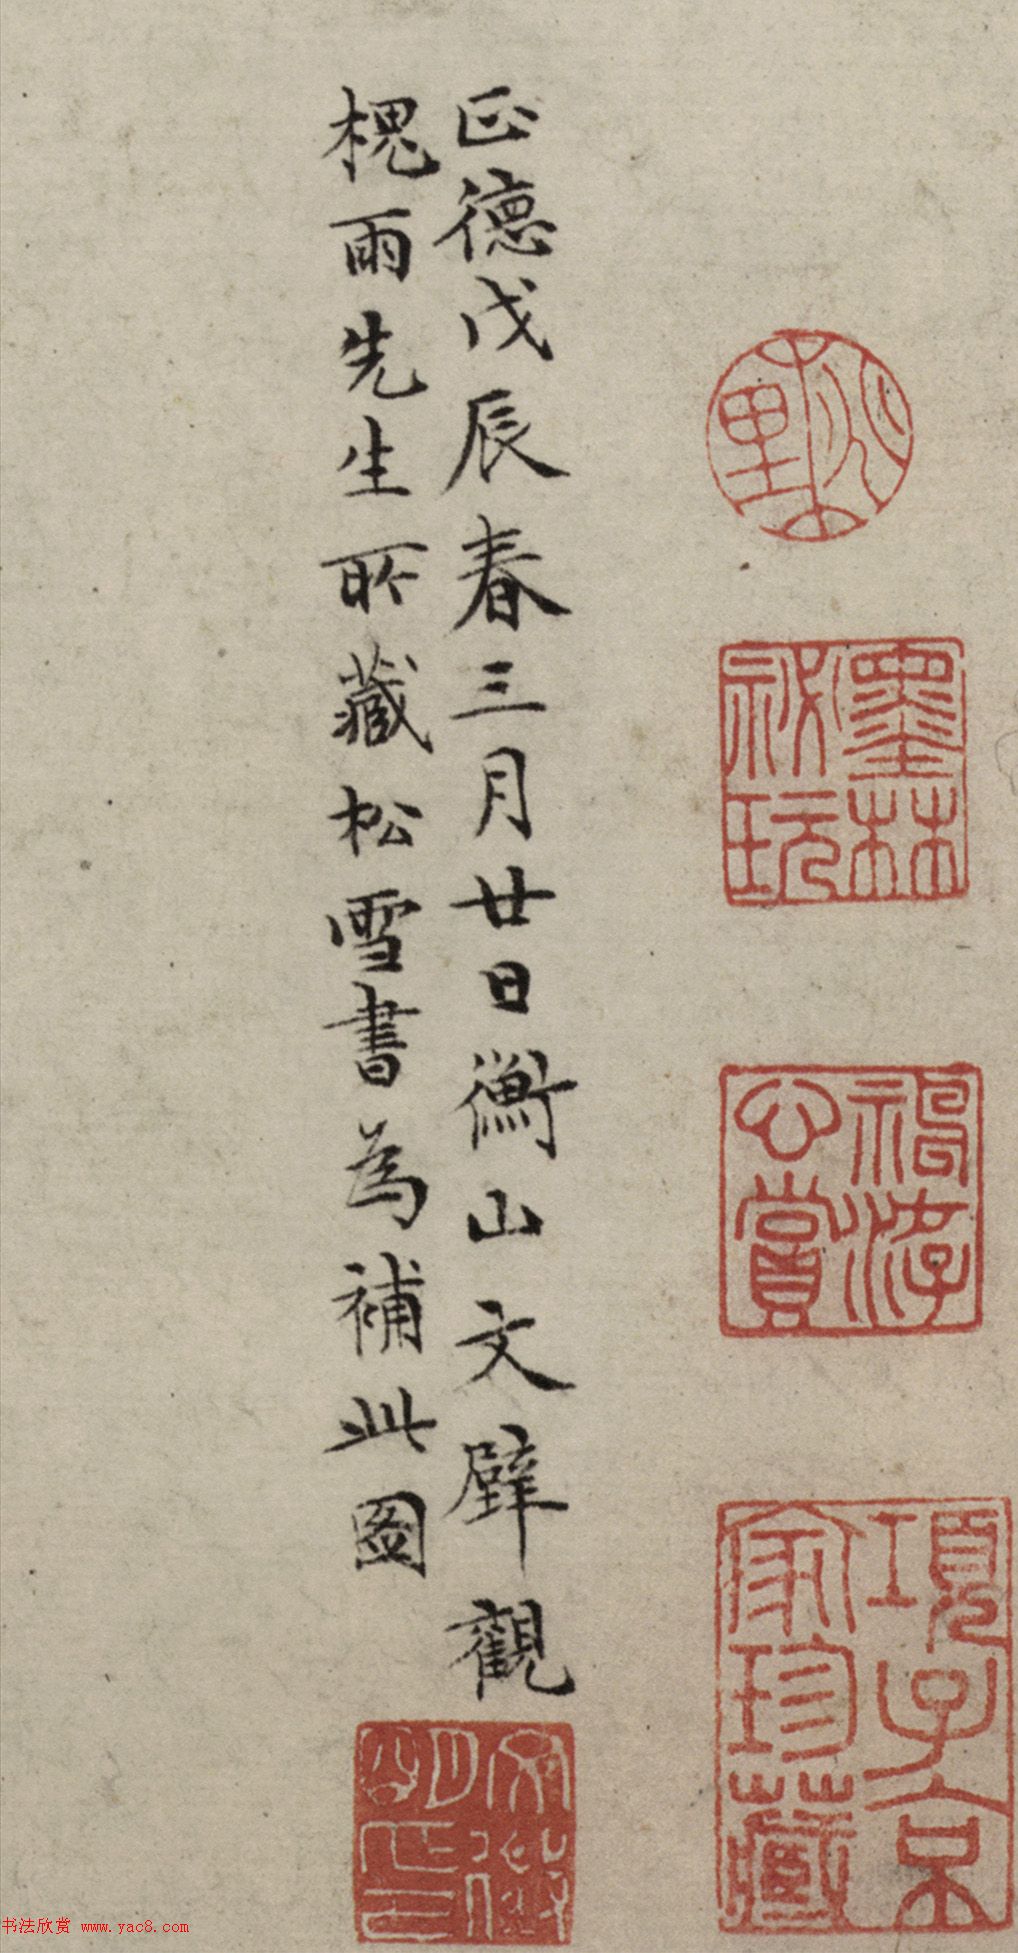 桃里
墨林祕玩
神游心賞
項子京家珍藏
正德戊辰春三月廿日衡山文壁觀
槐雨先生所藏松雪書為補此圖
文徵明印
书法欣赏 www.yac8.com